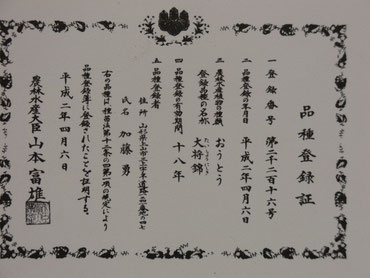 品種登録証
一 登録番号 第二千二百十六号
二 品種登録の年月日 平成二年四月六日
三 農林水産植物の種類 おうとう
登録品種の名称 大将錦
四 品種登録の有効期間 十八年
五 品種登録者
住所 山形県上山市
氏名 加藤勇
右の品種は、種苗法第十二条の四第一項の規定により
品種登録簿に登録されたことを証明する。
平成二年四月六日
農林水産大臣 山本富雄